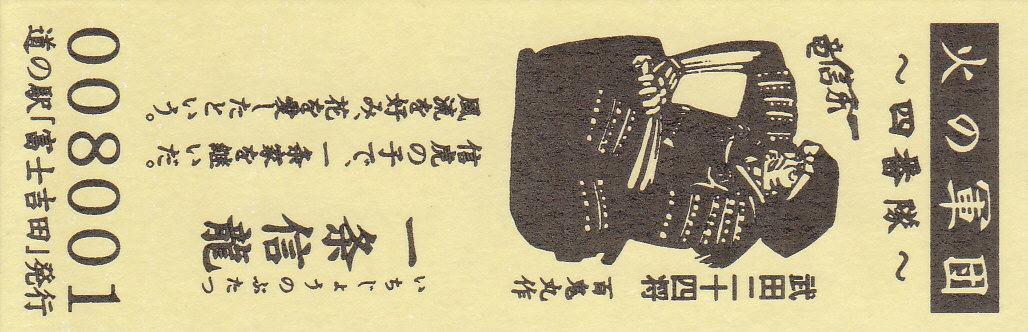 火の軍団
～四番隊～
武田二十四将 百鬼丸作
一条信竜
いちじょうのぶたつ
一条信龍
信虎の子で、一条家を継いだ。
風流を好み、花を愛したという。
008001
道の駅「富士吉田」発行